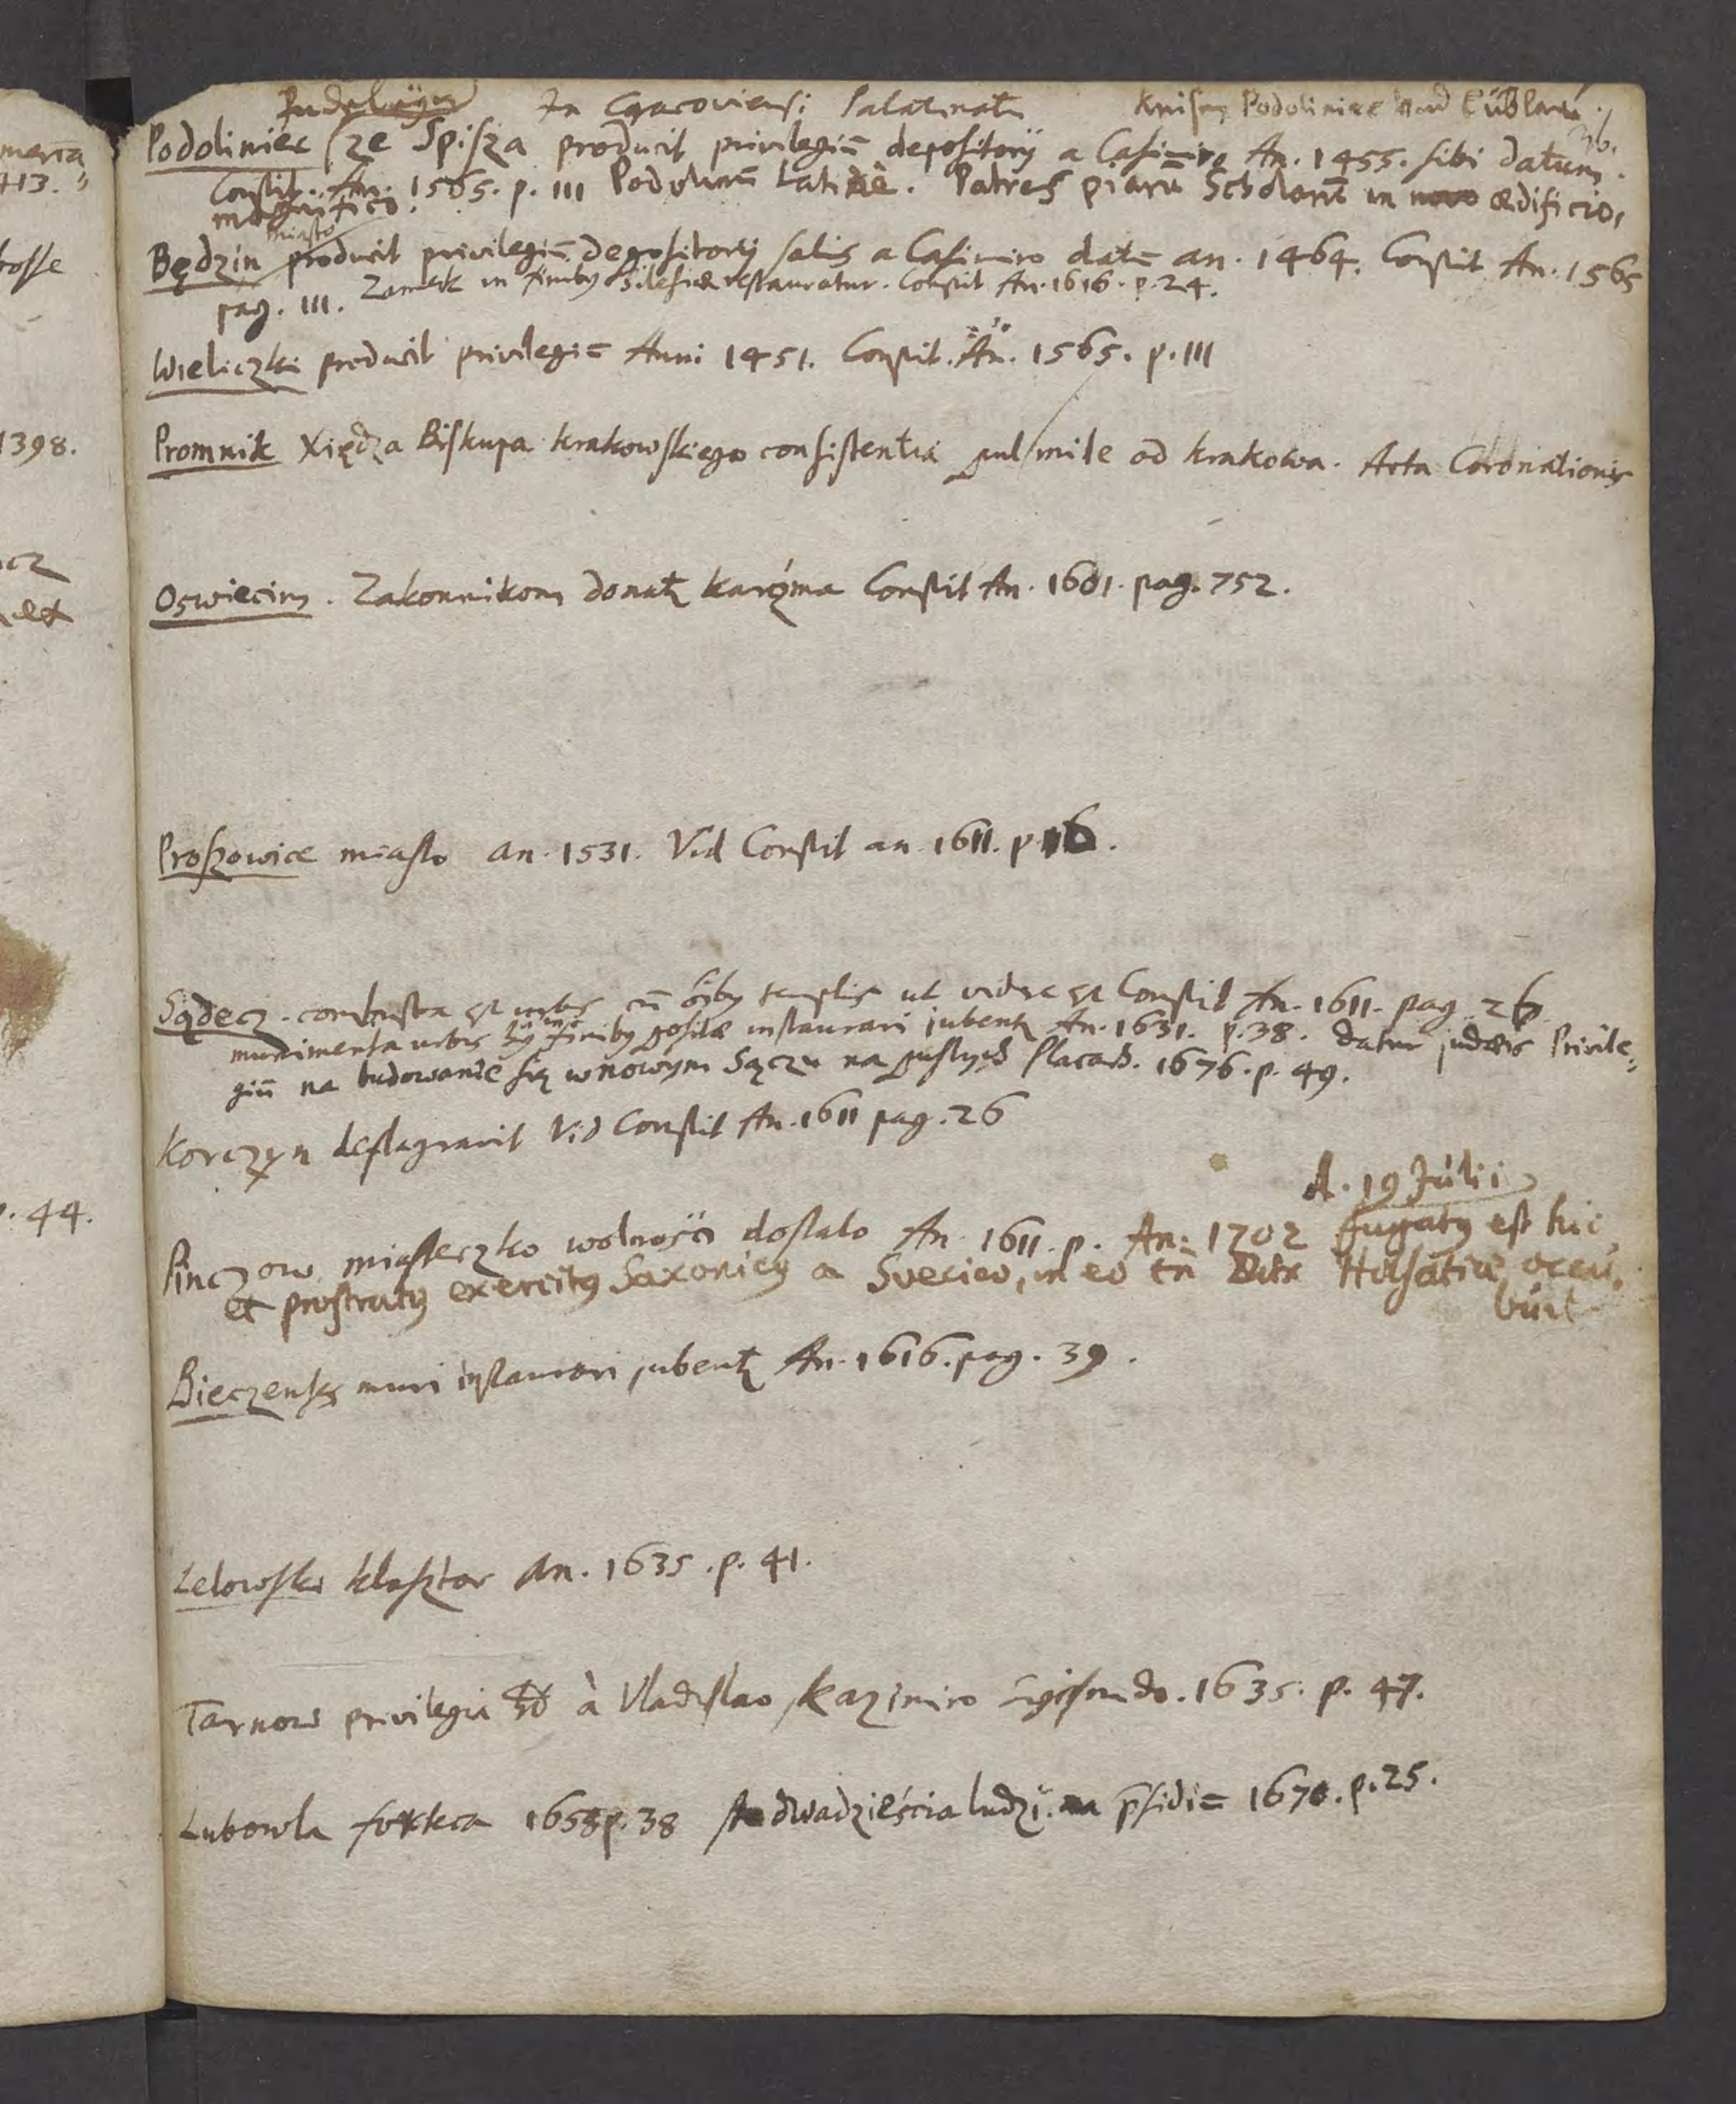 In Cracoviensi Palatinatu Knisen Podoliniec und Lüblau
Podoliniec ze Spisza producit privilegiū depositorij a Casimiro An. 1455. sibi datum.
Constit. An. 1565. p. 111 Podolinū Latinè. Patres piarū Scholarū in novo ædificio
magnifico.
miasto
Będzin producit privilegiū depositorij salis a Casimiro datū an. 1464. Constit An. 1565
pag. 111. Zamek in finibq Silesiæ restauratur. Constit An. 1616. p. 24.
Wieliczki producit privilegiū Anni 1451. Constit. An. 1565. p. 111
Promnik Xiędza Biskupa krakowskiego consistentia pul mile od krakowa. Acta Coronationis
Oswiecim. Zakonnikom donat karczma Constit An. 1601. pag. 752.
Proszowice miasto an. 1531. Vid Constit an 1611. p. 16.
Sądecz. combusta est urbs cū templis ut videre est Constit An. 1611. pag. 26
munimenta urbis in finibq positæ instaurari jubent An. 1631. p. 38. datur judæis Privile=
giū na budowanie się w nowym Sączu na pustych placach. 1676. p. 49.
Korczyn deflagravit Vid Constit An. 1611 pag. 26
d. 19 Julii
Pinczow miasteczko wolności dostalo An. 1611. p. An. 1702 fugatq est hic
et prostratq exercitq Saxonicq a Svecico, in eo tn Dux Holsatiæ occu,
buit
Bieczensis muri instaurari jubent An. 1616. pag. 39.
Lelowski klasztor An. 1635. p. 41.
Tarnow privilegia à Vladislao, Kazimiro Sigismdo. 1635. p. 47.
Lubowla forteca 1658 p. 38 sto dwadzieścia ludzi na psidiū 1670. p. 25.